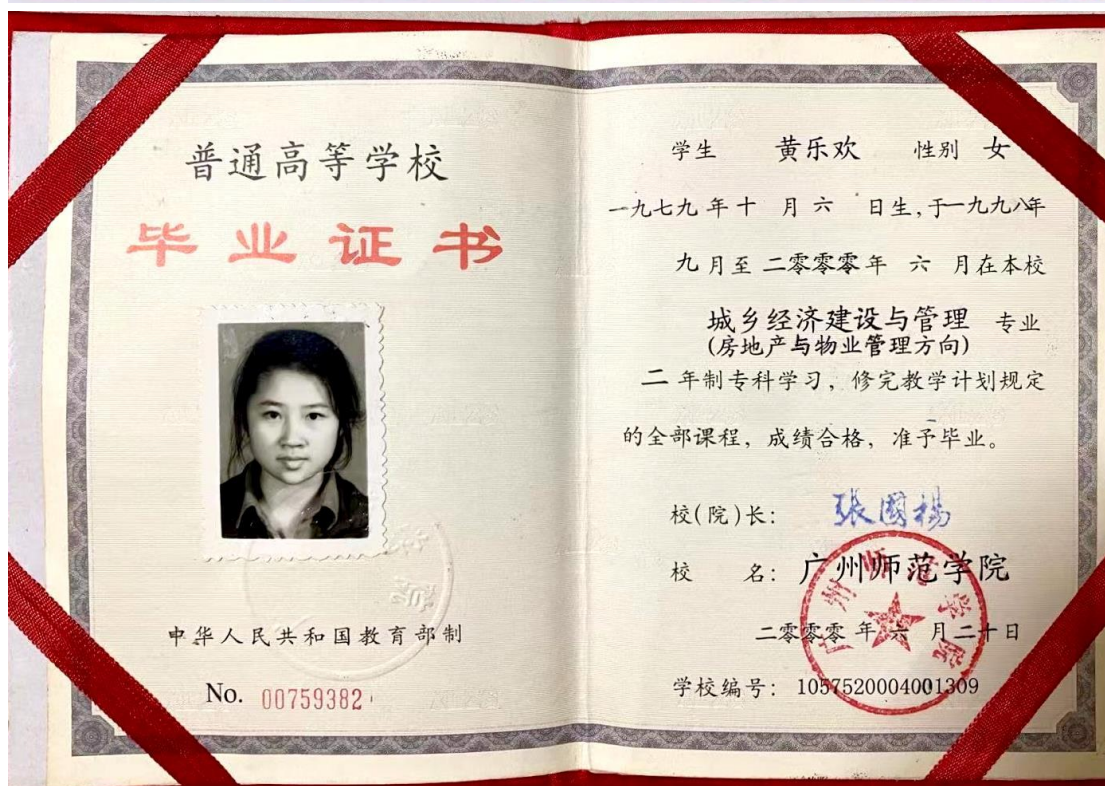 普通高等学校
毕业证书
中华人民共和国教育部制
No. 00759382
学生 黄乐欢 性别 女
一九七九年十月六日生,于一九九八年
九月至二零零零年六月在本校
城乡经济建设与管理 专业
(房地产与物业管理方向)
二年制专科学习，修完教学计划规定
的全部课程，成绩合格，准予毕业。
校(院)长： 張國楊
校名：广州师范学院
广州师范学院
二零零零年六月二十日
学校编号：1057520004001309